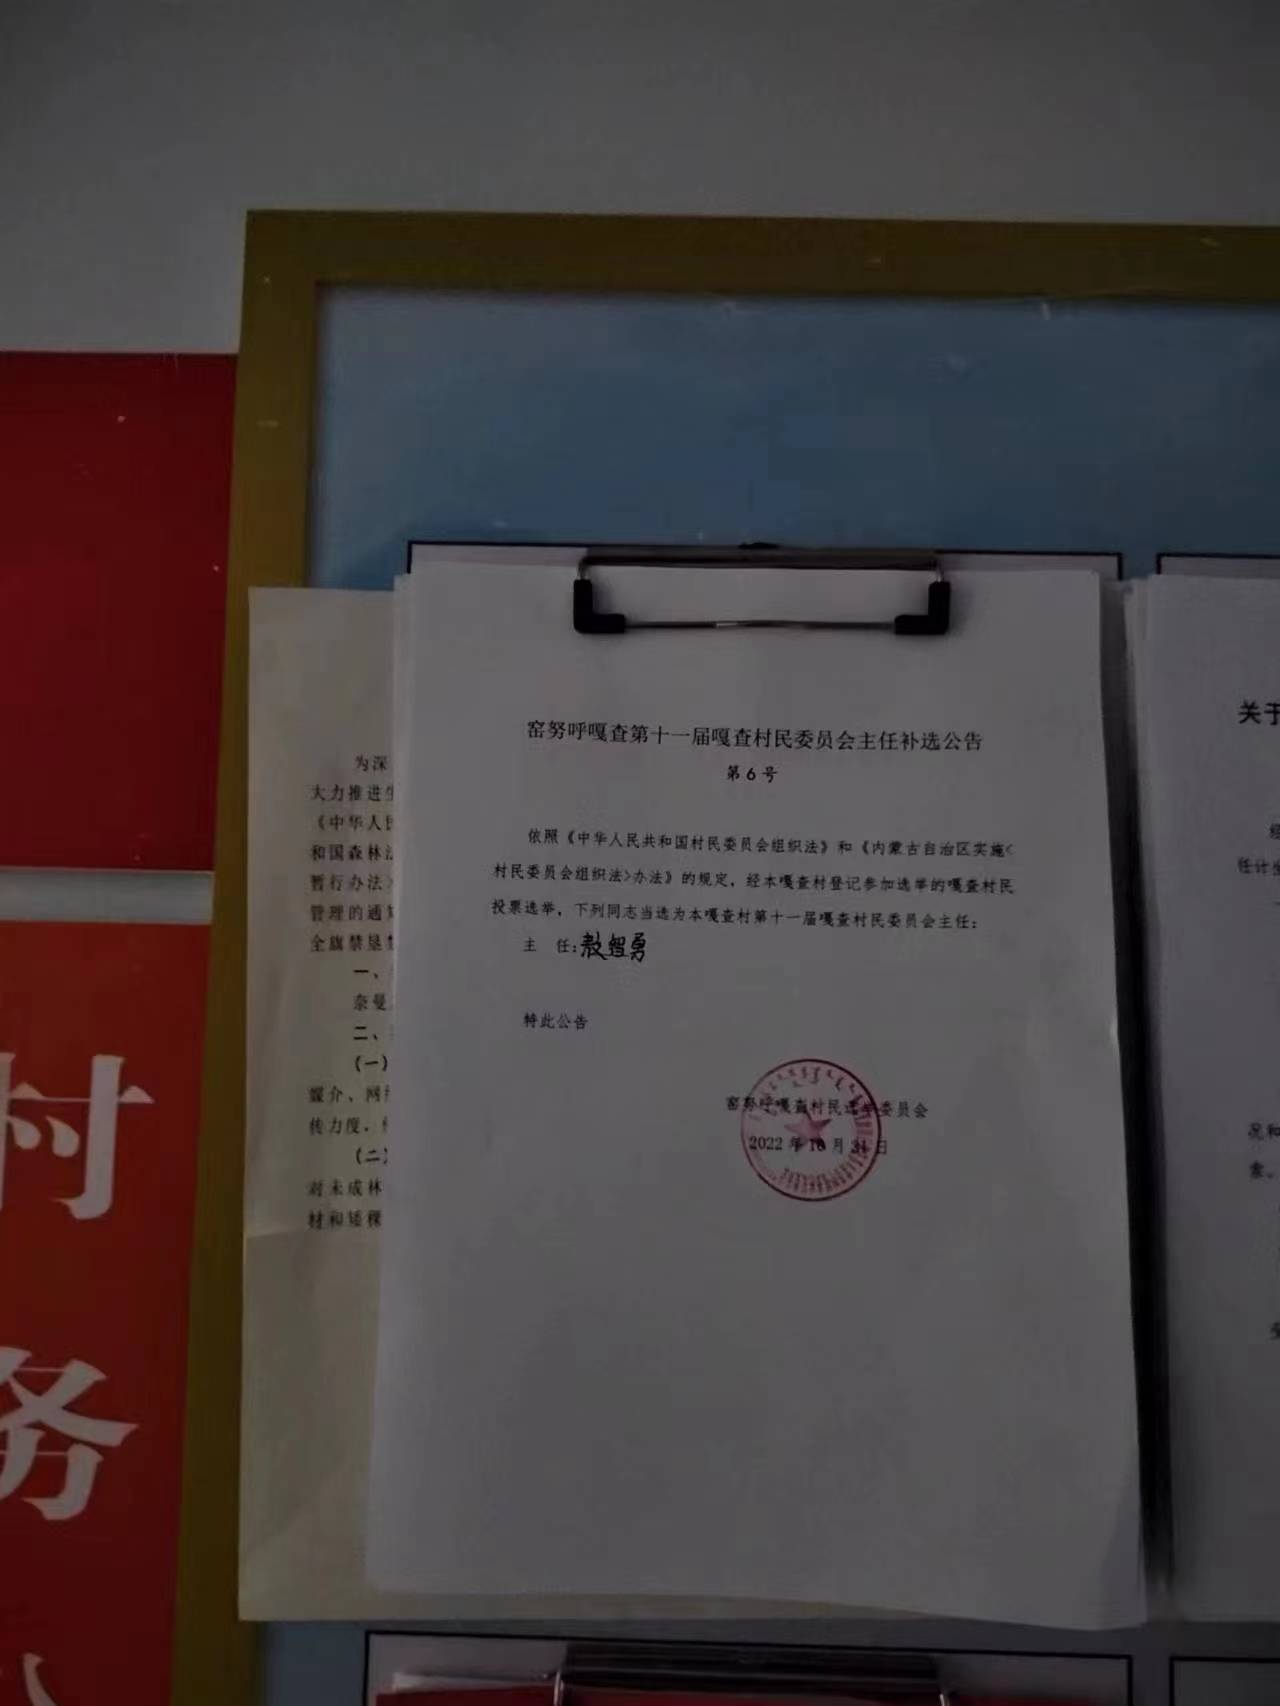 窑努呼嘎查第十一届嘎查村民委员会主任补选公告
第6号
依照《中华人民共和国村民委员会组织法》和《内蒙古自治区实施<
村民委员会组织法>办法》的规定，经本嘎查村登记参加选举的嘎查村民
投票选举，下列同志当选为本嘎查村第十一届嘎查村民委员会主任：
主 任：敖智勇
特此公告
窑努呼嘎查村民选举委员会
2022年10月31日
为深
大力推进生
《中华人民
和国森林法
暂行办法》
管理的通知
全旗禁垦禁
一、
奈曼
二、
(一)
媒介、网络
传力度，
(二)
对未成林
材和矮稞
关于
经
任计生
况和
村
务